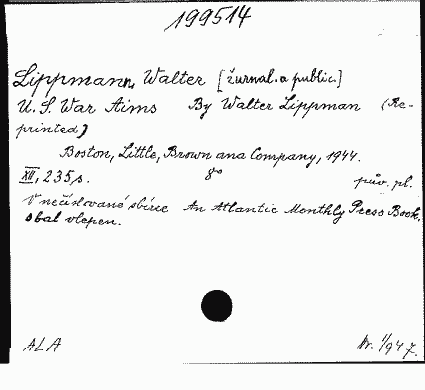 199514
Lippmann, Walter [žurnal. a public.]
U. S. War Aims By Walter Lippman (Re-
printed)
Boston, Little, Brown and Company, 1944.
XII, 235 s. 8° pův. pl.
V nečíslované sbírce An Atlantic Monthly Press Book.
obal vlepen.
ALA Nr. 1/947.